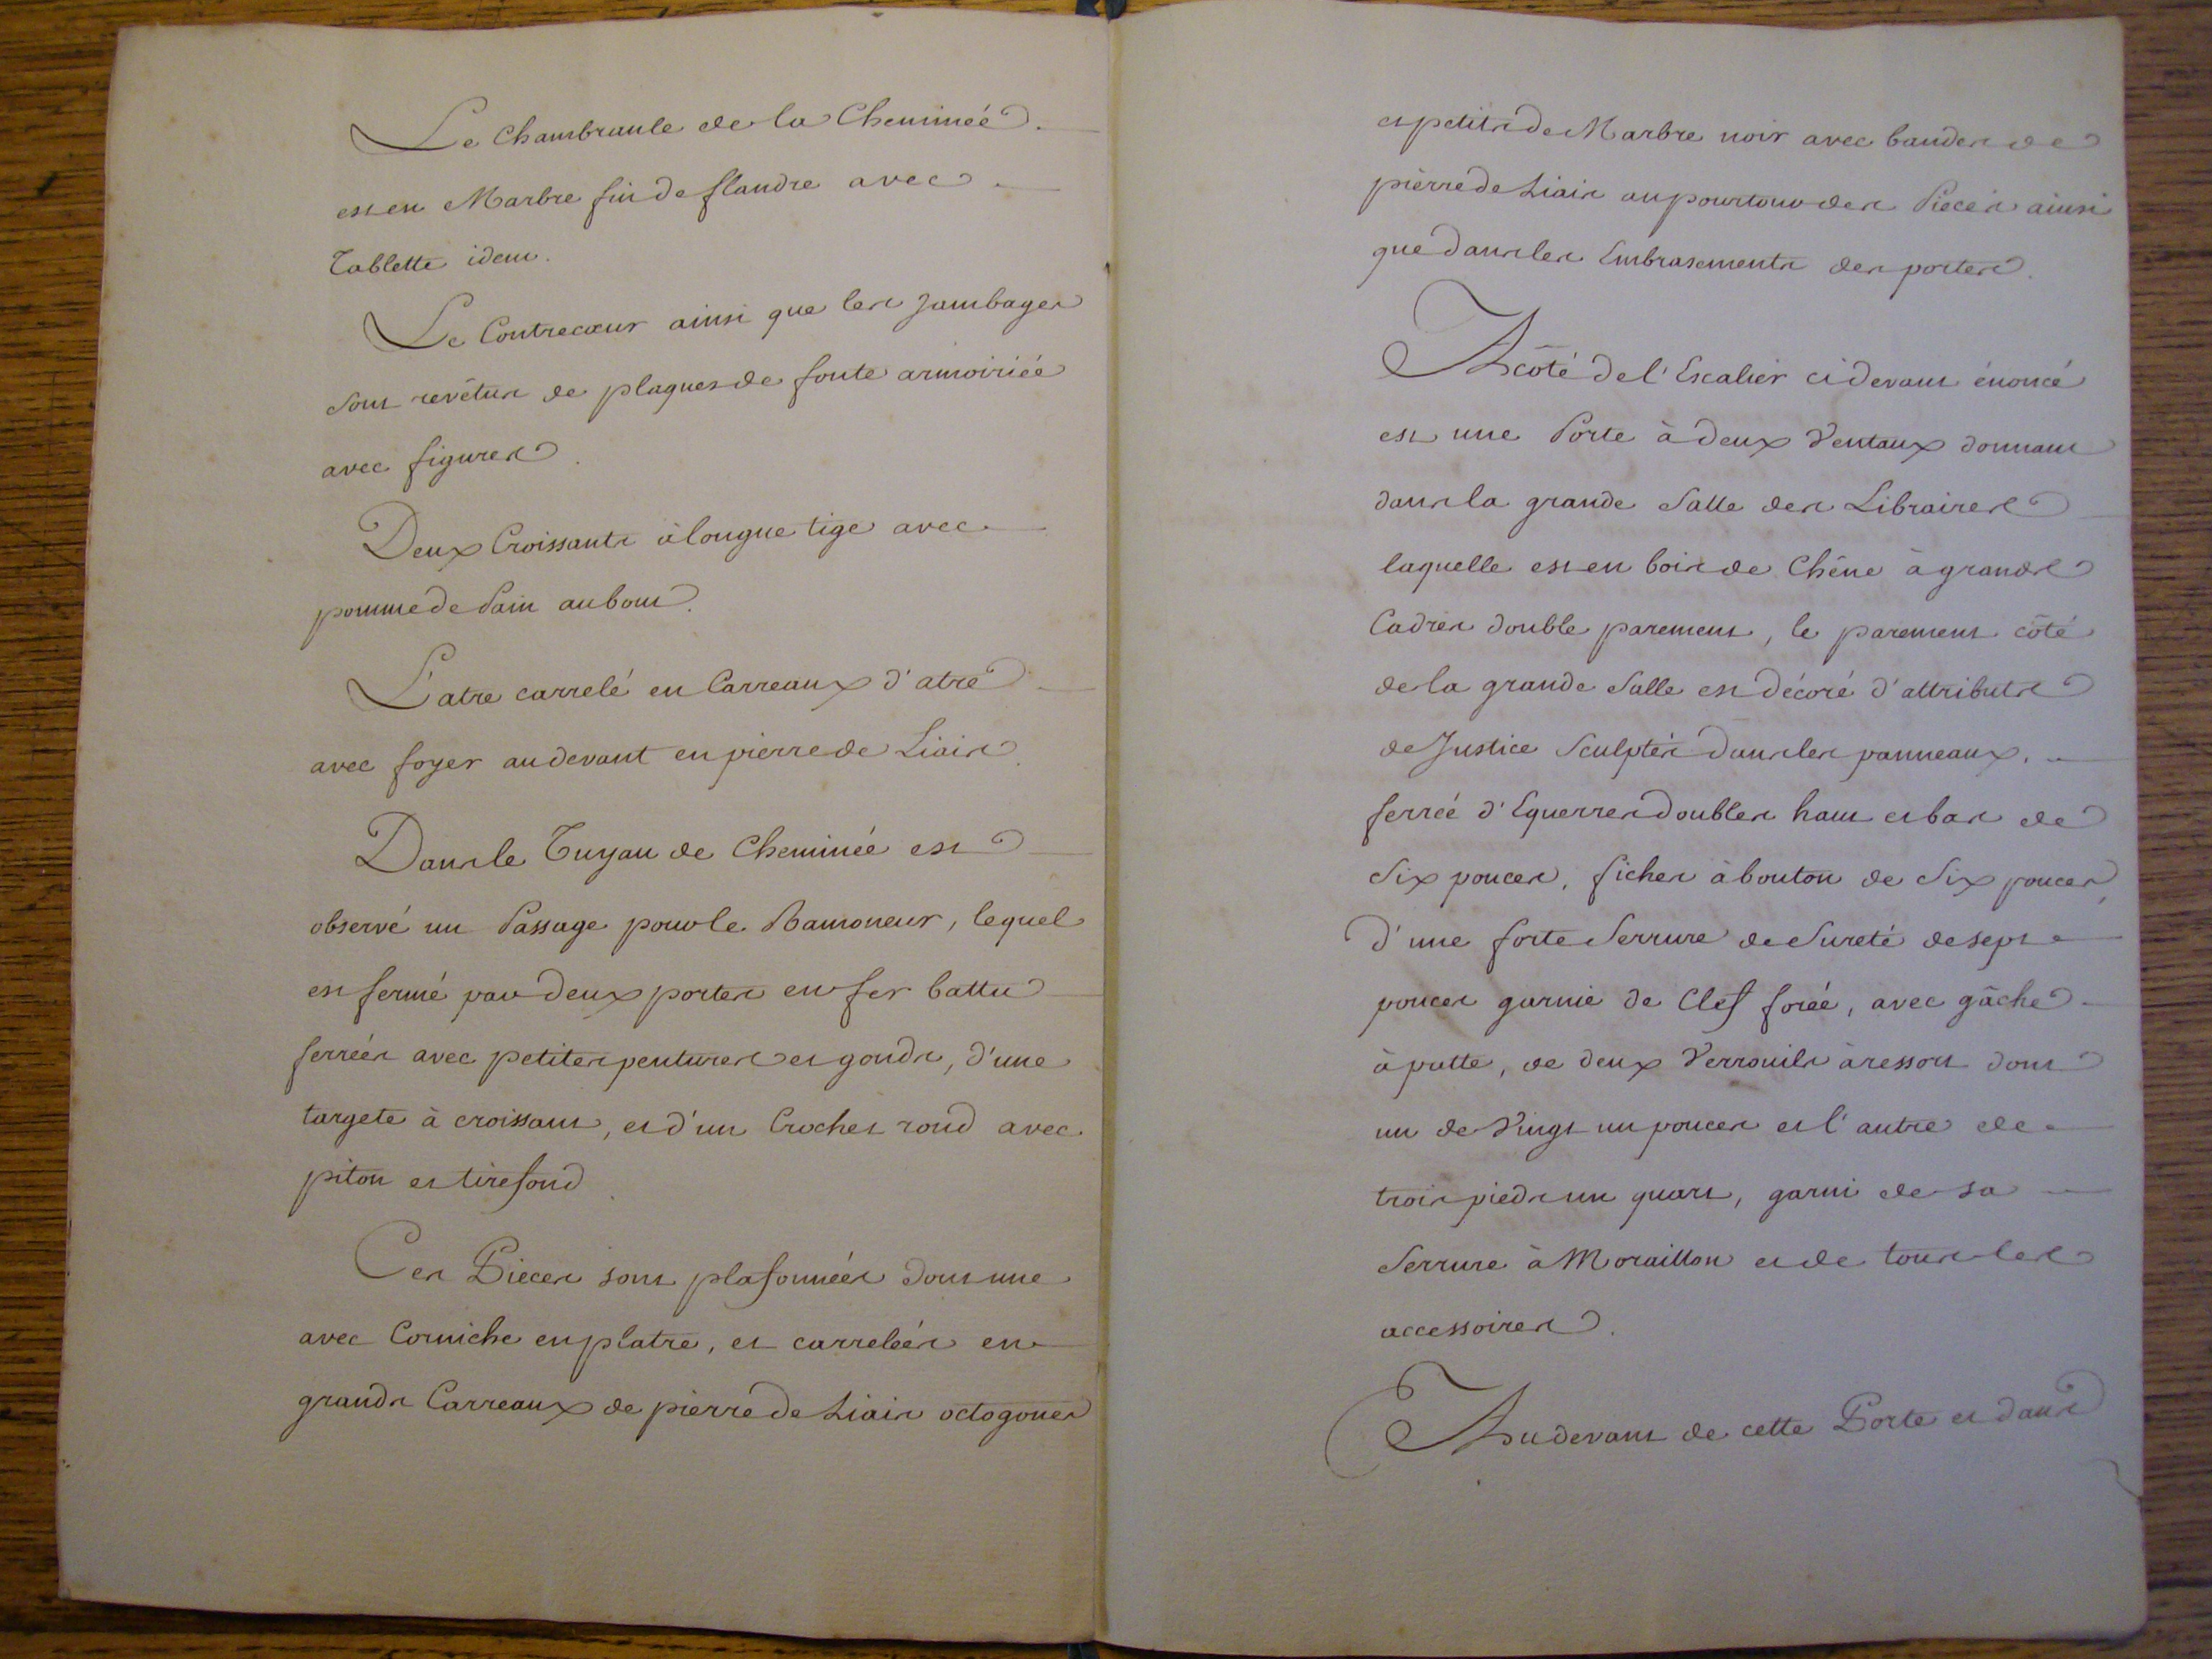 Le Chambranle de la Cheminée.
est en Marbre fin de flandre avec
Tablette idem.
Le Contrecœur ainsi que les Jambages
sont revêtus de plaques de fonte armoiriée
avec figures.
Deux Croissants à longue tige avec
pomme de Pain au bout.
L'atre carrelé en Carreaux d'atre
avec foyer au devant en pierre de Liais.
Dans le Tuyau de Cheminée est
observé un Passage pour le Ramoneur, lequel
est fermé par deux portes en fer battu
ferrées avec petites pentures et gonds, d'une
targete à croissant, et d'un Crochet rond avec
piton et tirefond.
Ces Pieces sont plafonnées dont une
avec Corniche en platre, et carrelées en
grands Carreaux de pierre de Liais octogones
et petits de Marbre noir avec bandes de
pierre de Liais au pourtour des Pieces ainsi
que dans les Embrasements des portes.
A côté de l'Escalier ci devant énoncé
est une Porte à deux Ventaux donnant
dans la grande Salle des Libraires
laquelle est en bois de Chêne à grands
Cadres double parement, le parement côté
de la grande Salle est décoré d'attributs
de Justice Sculptés dans les panneaux.
ferrée d'Equerres doubles haut et bas de
Six pouces, fiches à bouton de Six pouces,
d'une forte Serrure de Sureté de sept
pouces garnie de Clef forée, avec gâche
à patte, de deux Verrouils à ressort dont
un de Vingt un pouces et l'autre de
trois pieds un quart, garni de sa
Serrure à Moraillon et de tous les
accessoires.
Au devant de cette Porte et dans